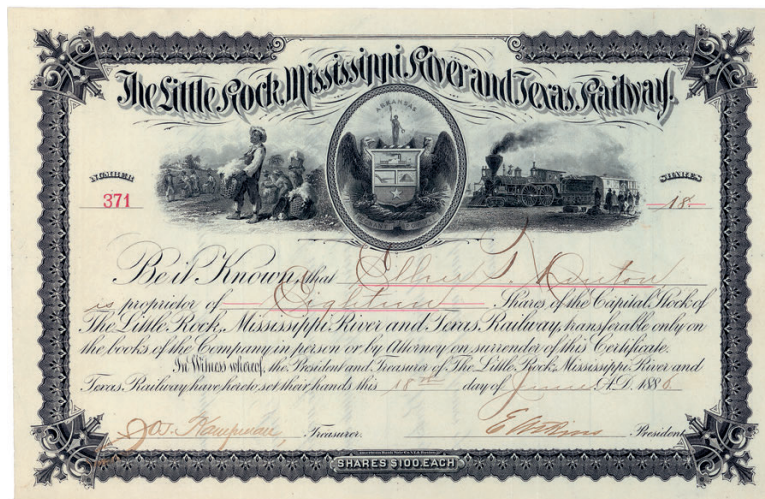 The Little Rock, Mississippi River and Texas Railway.
ARKANSAS
NUMBER
371
SHARES
18
Be it Known, that
is proprietor of Eighteen Shares of the Capital Stock of
The Little Rock, Mississippi River and Texas Railway, transferable only on
the books of the Company in person or by Attorney on surrender of this Certificate.
In Witness whereof, the President and Treasurer of The Little Rock, Mississippi River and
Texas Railway have hereto set their hands this 18th day of June A.D. 1886
Treasurer.
President
SHARES $100. EACH